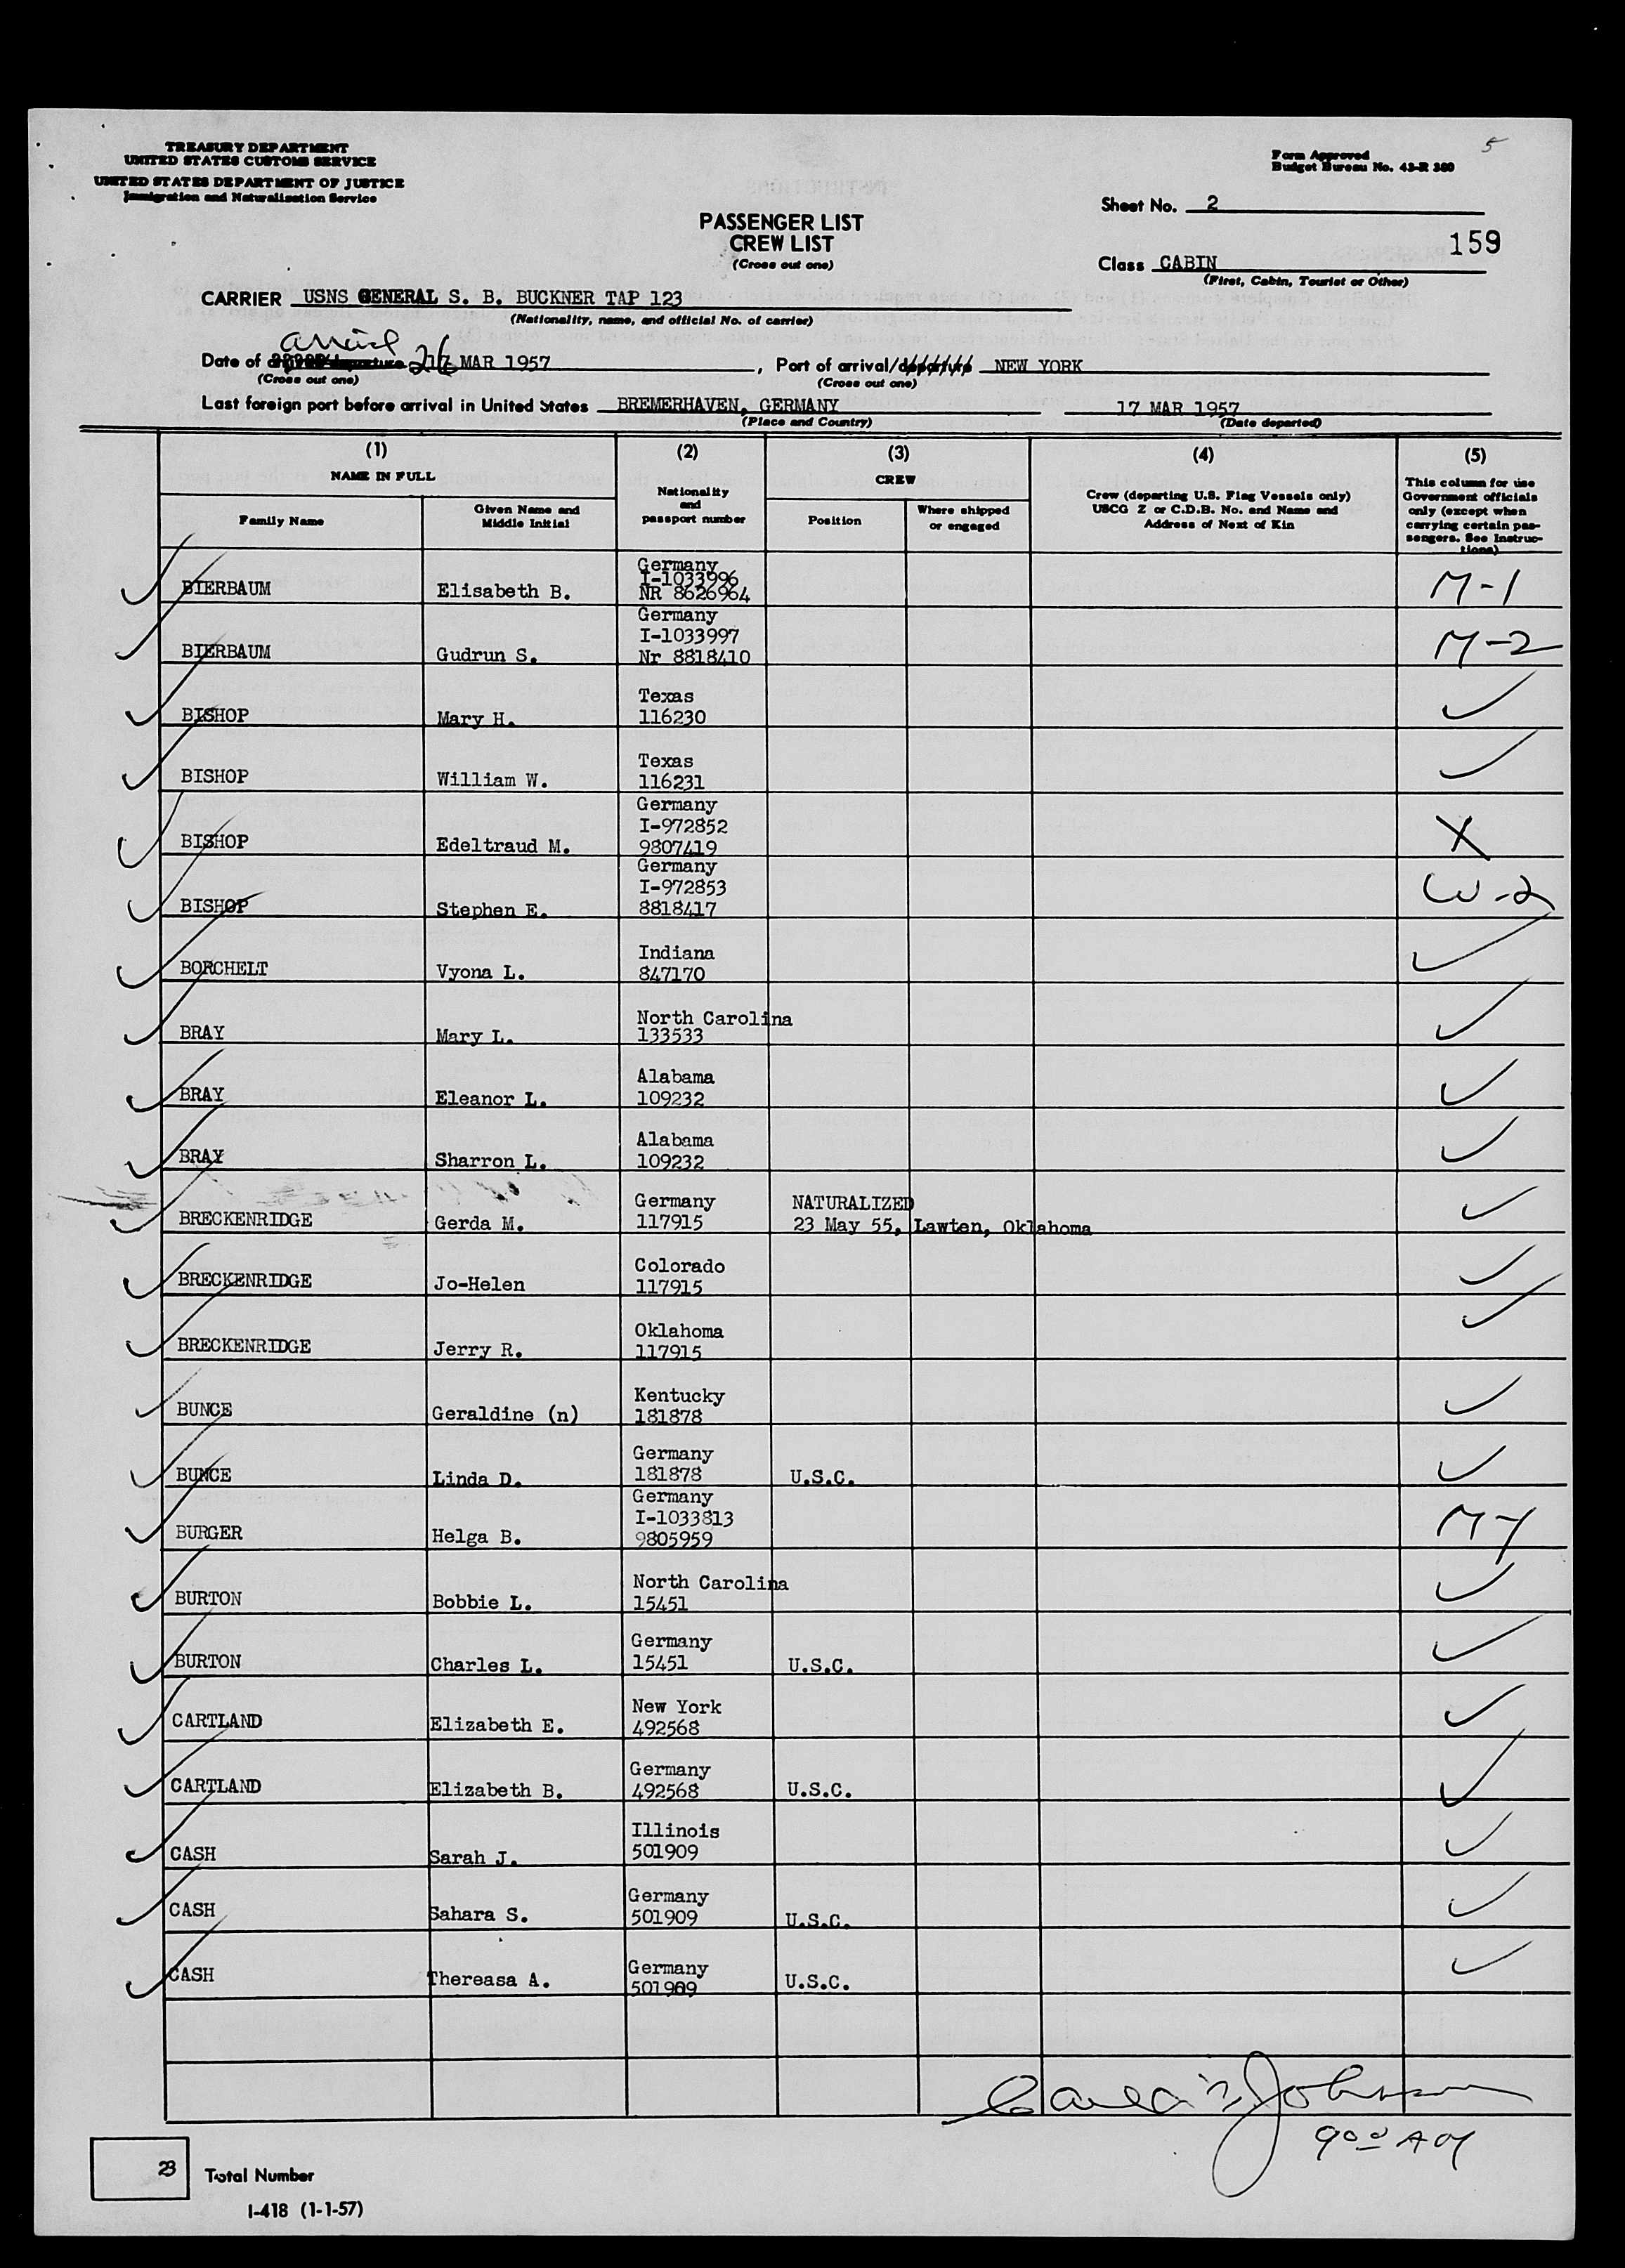 5
TREASURY DEPARTMENT
UNITED STATES CUSTOMS SERVICE
UNITED STATES DEPARTMENT OF JUSTICE
Immigration and Naturalization Service
Form Approved
Budget Bureau No. 43-R 380
Sheet No. 2
PASSENGER LIST
CREW LIST
(Cross out one)
159
Class CABIN
(First, Cabin, Tourist or Other)
CARRIER USNS GENERAL S. B. BUCKNER TAP 123
(Nationality, name, and official No. of carrier)
arrival
Date of 26 MAR 1957, Port of arrival/departure NEW YORK
(Cross out one) (Cross out one)
Last foreign port before arrival in United States BREMERHAVEN, GERMANY 17 MAR 1957
(Place and Country) (Date departed)
(1) (2) (3) (4) (5)
NAME IN FULL
Family Name
Given Name and
Middle Initial
Nationality
and
passport number
CREW
Position
Where shipped
or engaged
Crew (departing U.S. Flag Vessels only)
USCG Z or C.D.B. No. and Name and
Address of Next of Kin
This column for use
Government officials
only (except when
carrying certain pas-
sengers. See Instruc-
tions)
Germany
I-1033996
BIERBAUM Elisabeth B. NR 8626964 M-1
Germany
I-1033997
BIERBAUM Gudrun S. Nr 8818410 M-2
Texas
BISHOP Mary H. 116230
Texas
BISHOP William W. 116231
Germany
I-972852
BISHOP Edeltraud M. 9807419 X
Germany
I-972853
BISHOP Stephen E. 8818417 W-2
Indiana
BORCHELT Vyona L. 847170
North Carolina
BRAY Mary L. 133533
Alabama
BRAY Eleanor L. 109232
Alabama
BRAY Sharron L. 109232
Germany NATURALIZED
BRECKENRIDGE Gerda M. 117915 23 May 55, Lawten, Oklahoma
Colorado
BRECKENRIDGE Jo-Helen 117915
Oklahoma
BRECKENRIDGE Jerry R. 117915
Kentucky
BUNCE Geraldine (n) 181878
Germany
BUNCE Linda D. 181878 U.S.C.
Germany
I-1033813
BURGER Helga B. 9805959 M-1
North Carolina
BURTON Bobbie L. 15451
Germany
BURTON Charles L. 15451 U.S.C.
New York
CARTLAND Elizabeth E. 492568
Germany
CARTLAND Elizabeth B. 492568 U.S.C.
Illinois
CASH Sarah J. 501909
Germany
CASH Sahara S. 501909 U.S.C.
Germany
CASH Thereasa A. 501909 U.S.C.
Johnson
9 00 AM
23 Total Number
I-418 (1-1-57)